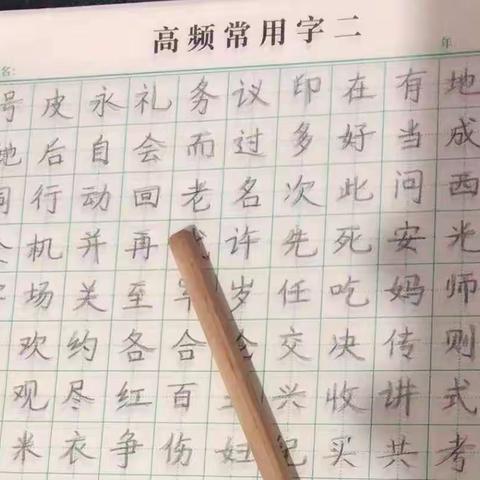 高频常用字二
年
名:
号皮永礼务议印在有地
地后自会而过多好当成
同行动回老名次此问西
机并再许先死安光
场关至早岁任吃妈师
欢约各合全交决传则
观尽红百兴收讲式
米衣争伤妇买共考